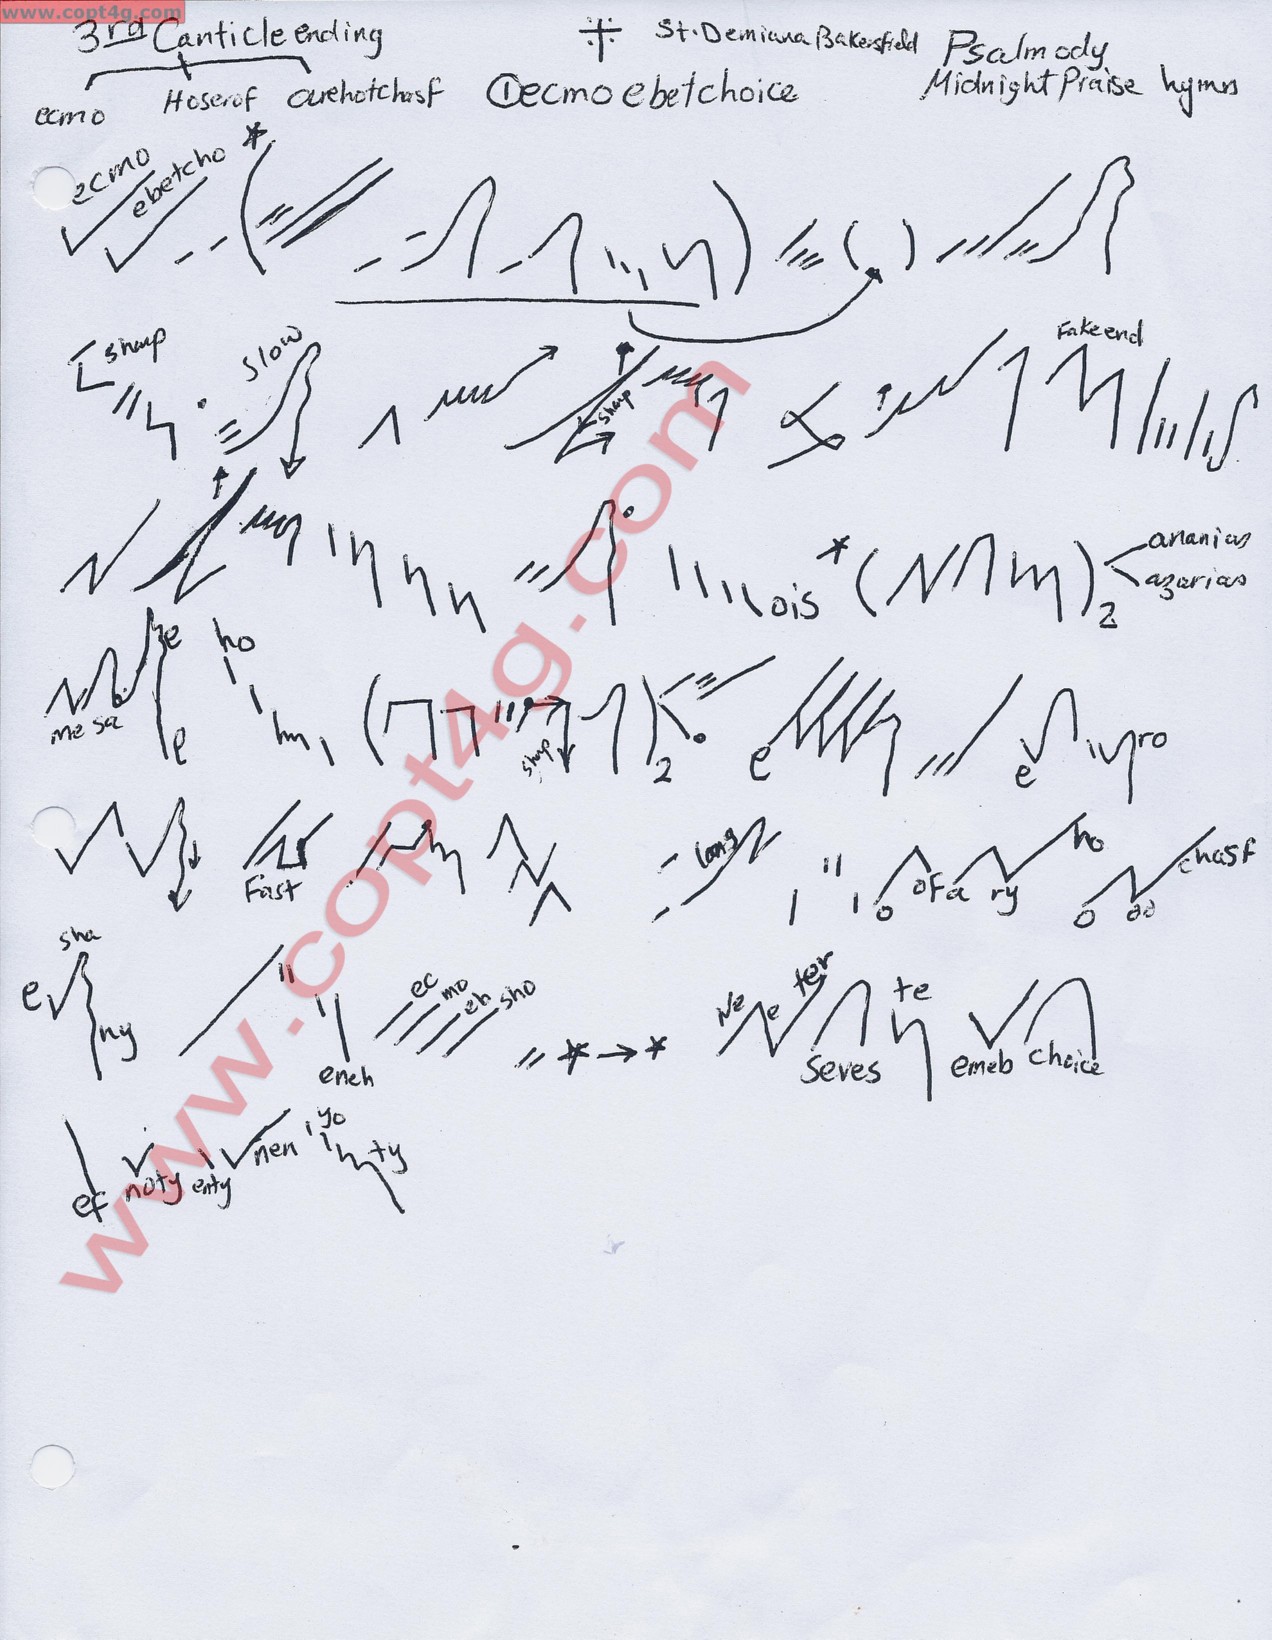 www.copt4g.com
3rd Canticle ending St. Demiana Bakersfield Psalmody
ecmo Hoserof ① ecmo ebetchoice Midnight Praise hymn
ecmo ebetcho *
sharp slow sharp Fake end
ois * ( ) 2 ananias
azarias
me sa e e ho sharp 2 e e ro
Fast long o oFa ry ho o chasf
e sha ny ench ec mo eh sho * → * Ne e ter seves te emeb choice
ef noty enty nen yo ty
www.copt4g.com